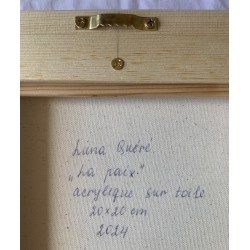 Luna Quéré
„La paix“
acrylique sur toile
20x20 cm
2024